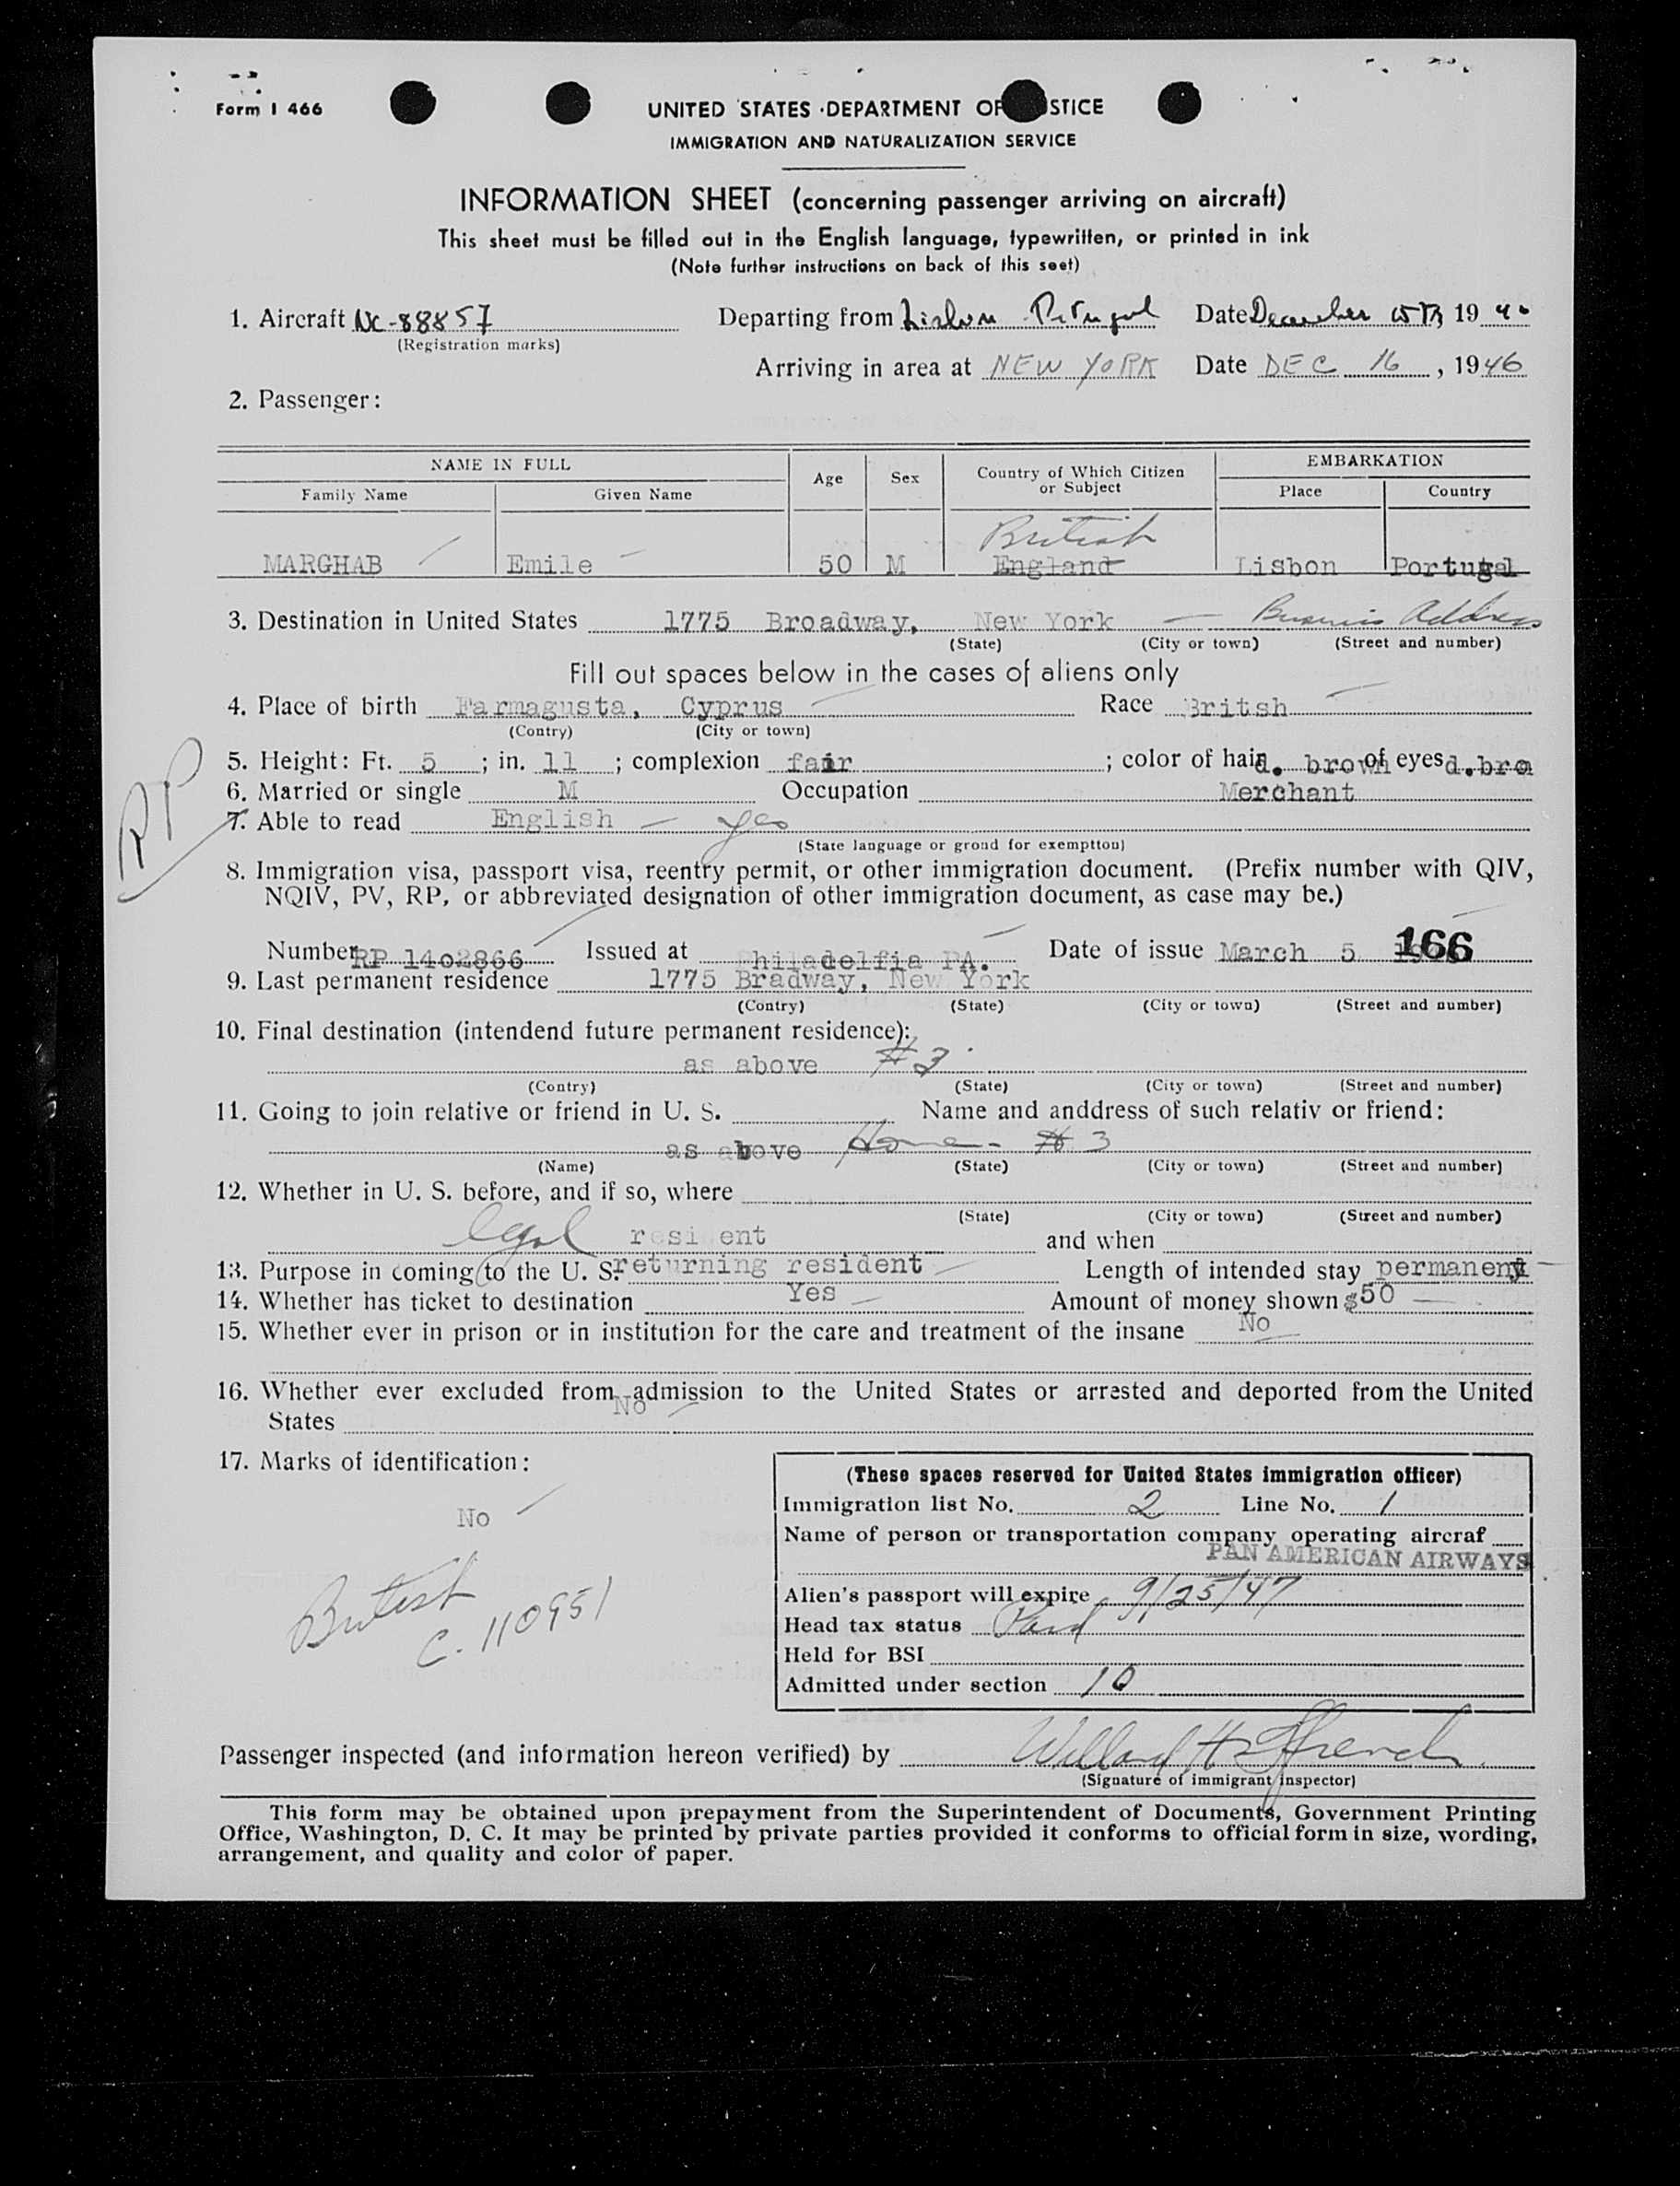 Form I 466
UNITED STATES DEPARTMENT OF STICE
IMMIGRATION AND NATURALIZATION SERVICE
INFORMATION SHEET (concerning passenger arriving on aircraft)
This sheet must be filled out in the English language, typewritten, or printed in ink
(Note further instructions on back of this seet)
1. Aircraft NC-88857 Departing from Lisbon Portugal Date December 15th 19 46
(Registration marks)
Arriving in area at NEW YORK Date DEC 16, 1946
2. Passenger:
NAME IN FULL Age Sex Country of Which Citizen or Subject EMBARKATION
Family Name Given Name Place Country
British
MARGHAB Emile 50 M England Lisbon Portugal
3. Destination in United States 1775 Broadway, New York - Business Address
(State) (City or town) (Street and number)
Fill out spaces below in the cases of aliens only
4. Place of birth Farmagusta, Cyprus Race Britsh
(Contry) (City or town)
RP
5. Height: Ft. 5 ; in. 11 ; complexion fair ; color of hair d. brown of eyes d.bro
6. Married or single M Occupation Merchant
7. Able to read English - yes
(State language or groud for exempttou)
8. Immigration visa, passport visa, reentry permit, or other immigration document. (Prefix number with QIV,
NQIV, PV, RP, or abbreviated designation of other immigration document, as case may be.)
Number RP 14o2866 Issued at Philadelfia PA. Date of issue March 5 166
9. Last permanent residence 1775 Bradway, New York
(Contry) (State) (City or town) (Street and number)
10. Final destination (intendend future permanent residence):
as above #3
(Contry) (State) (City or town) (Street and number)
11. Going to join relative or friend in U. S. Name and anddress of such relativ or friend:
as above Home - # 3
(Name) (State) (City or town) (Street and number)
12. Whether in U. S. before, and if so, where
(State) (City or town) (Street and number)
legal resi ent and when
13. Purpose in coming to the U. S. returning resident Length of intended stay permanent
14. Whether has ticket to destination Yes Amount of money shown $50
15. Whether ever in prison or in institution for the care and treatment of the insane No
16. Whether ever excluded from admission to the United States or arrested and deported from the United
States No
17. Marks of identification:
No
British
C. 110951
(These spaces reserved for United States immigration officer)
Immigration list No. 2 Line No. 1
Name of person or transportation company operating aircraf
PAN AMERICAN AIRWAYS
Alien's passport will expire 9/25/47
Head tax status Paid
Held for BSI
Admitted under section 10
Passenger inspected (and information hereon verified) by Willard H
(Signature of immigrant inspector)
This form may be obtained upon prepayment from the Superintendent of Documents, Government Printing
Office, Washington, D. C. It may be printed by private parties provided it conforms to official form in size, wording,
arrangement, and quality and color of paper.